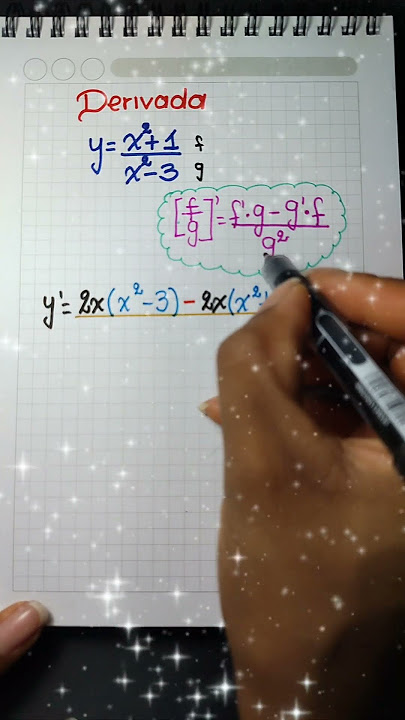 Derivada
y = x²+1 / x²-3 f g
[f/g]' = f'·g - g'·f / g²
y' = 2x(x²-3) - 2x(x²